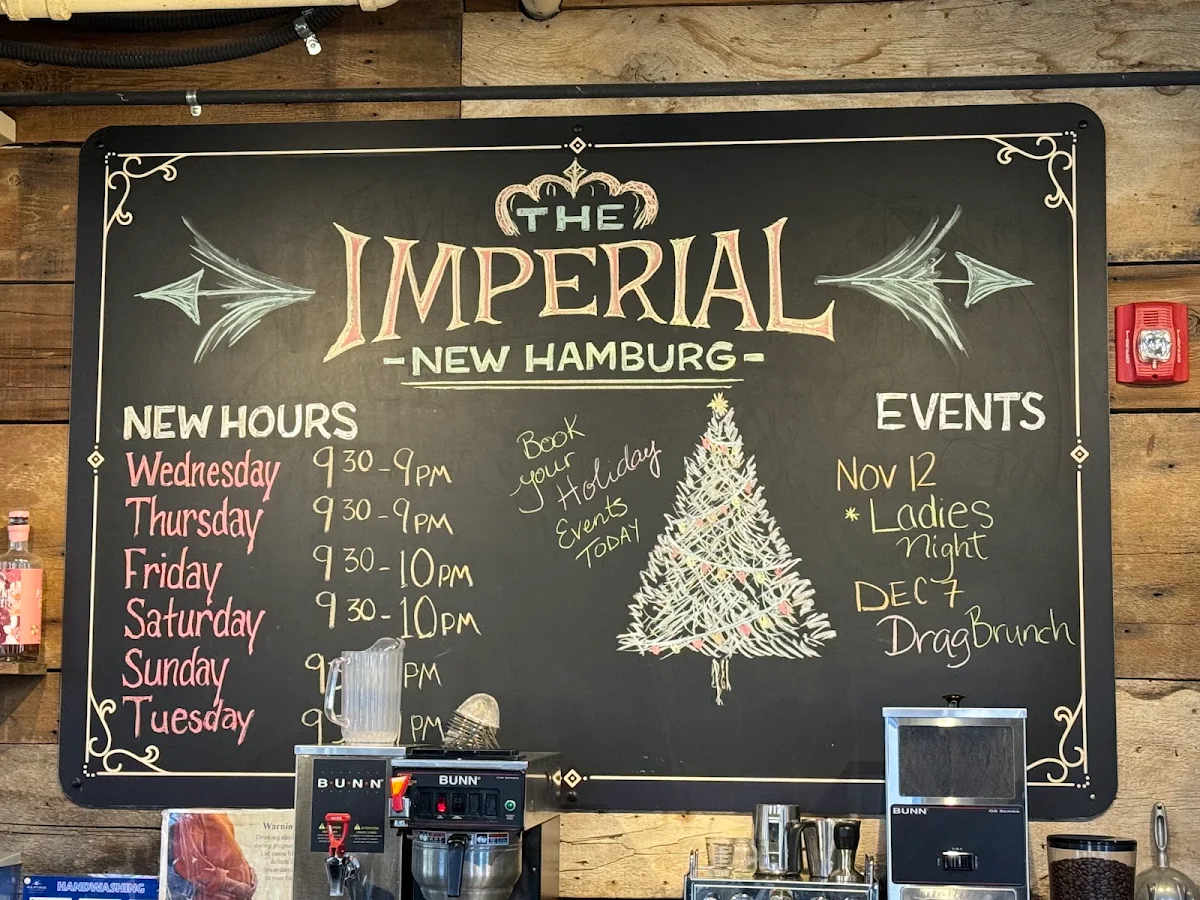 THE
IMPERIAL
-NEW HAMBURG-
NEW HOURS
Wednesday 930-9PM
Thursday 930-9PM
Friday 930-10PM
Saturday 930-10PM
Sunday 9 PM
Tuesday 9 PM
Book
your
Holiday
Events
TODAY
EVENTS
Nov 12
*Ladies
night
DEC 7
Drag Brunch
BUNN
BUNN
BUNN
Warnin
HANDWASHING